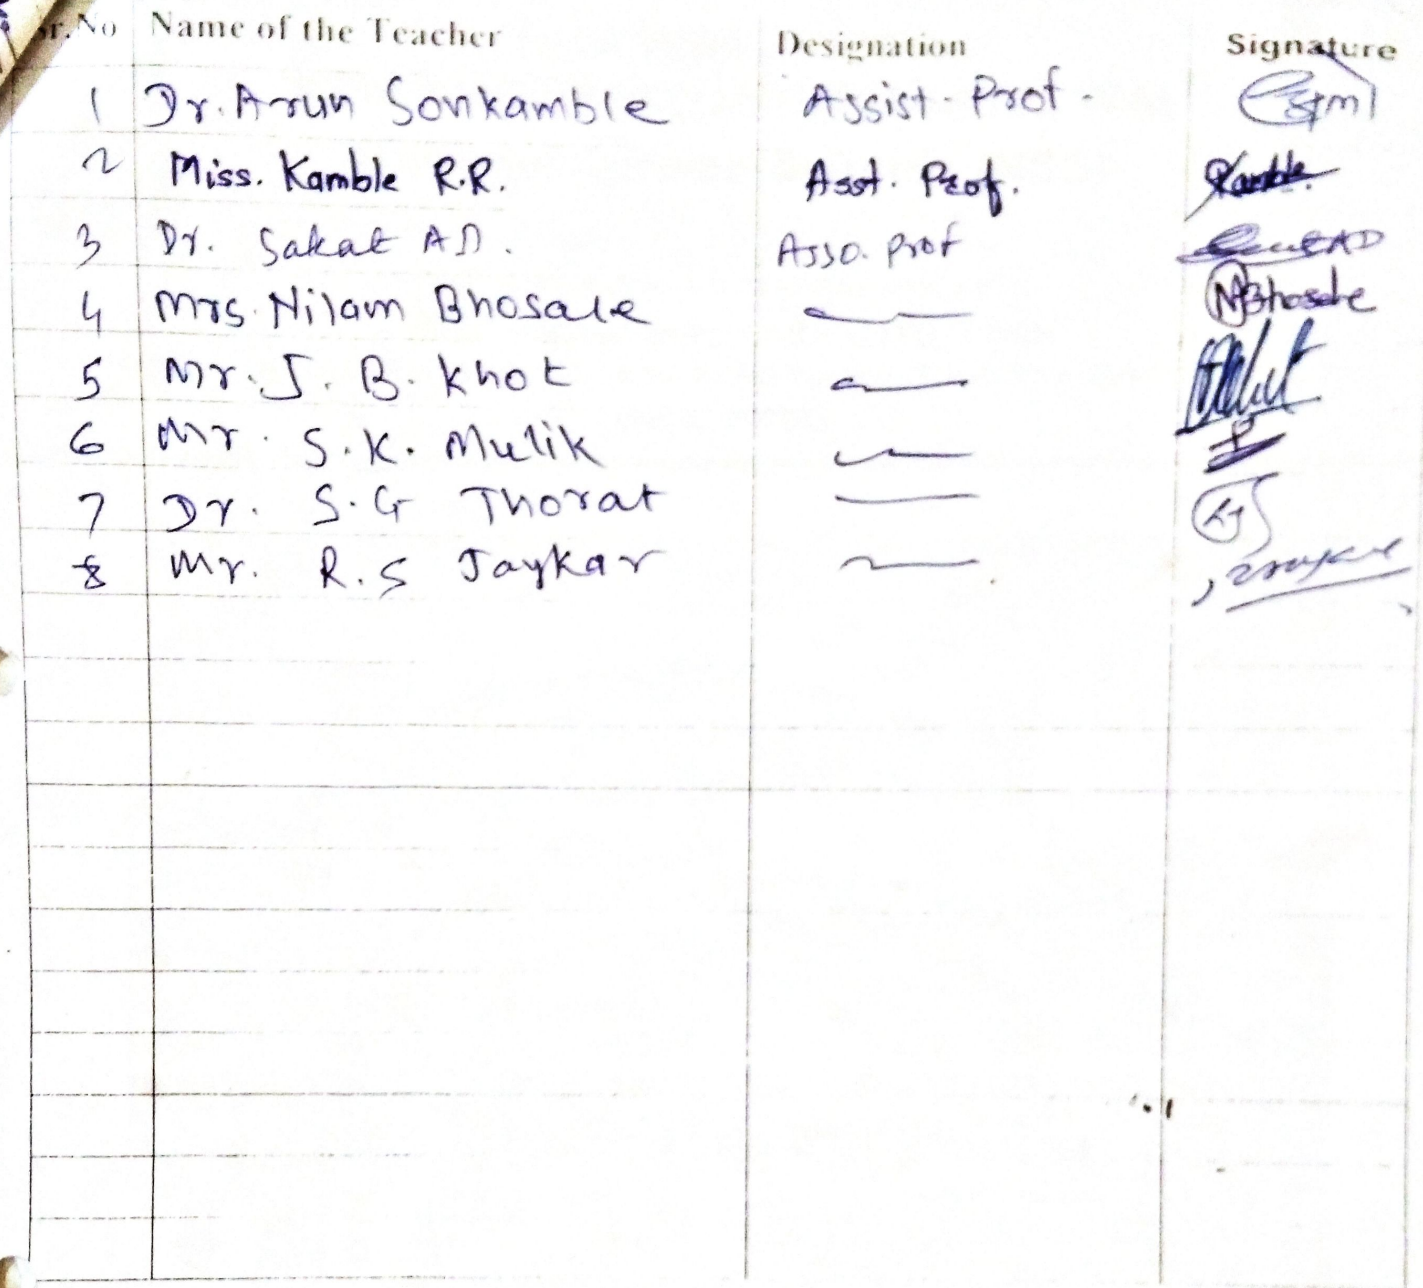 Sr.No Name of the Teacher Designation Signature
1 Dr. Arun Sonkamble Assist. Prof.
2 Miss. Kamble R.R. Asst. Prof. Kamble
3 Dr. Sakat A.D. Asso. Prof
4 Mrs. Nilam Bhosale NBhosale
5 Mr. J. B. Khot
6 Mr. S. K. Mulik
7 Dr. S. G Thorat
8 Mr. R. S Jaykar